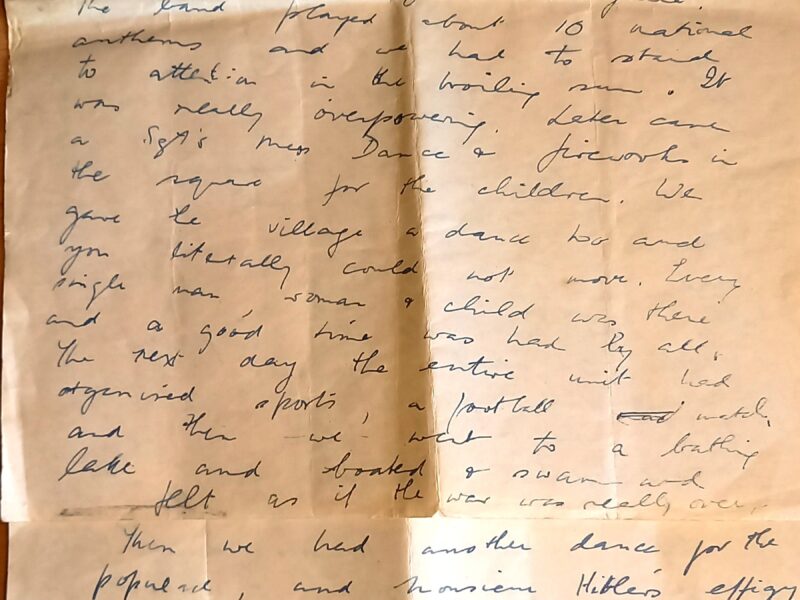 The band played about 10 national
anthems and we had to stand
to attention in the broiling sun. It
was really overpowering. Later came
a Sgt's mess Dance & fireworks in
the square for the children. We
gave the village a dance too and
you literally could not move. Every
single man woman & child was there
and a good time was had by all.
The next day the entire unit had
organised sports, a football match,
and then we went to a bathing
lake and boated & swam and
felt as if the war was really over.
Then we had another dance for the
populace, and monsieur Hitler's effigy